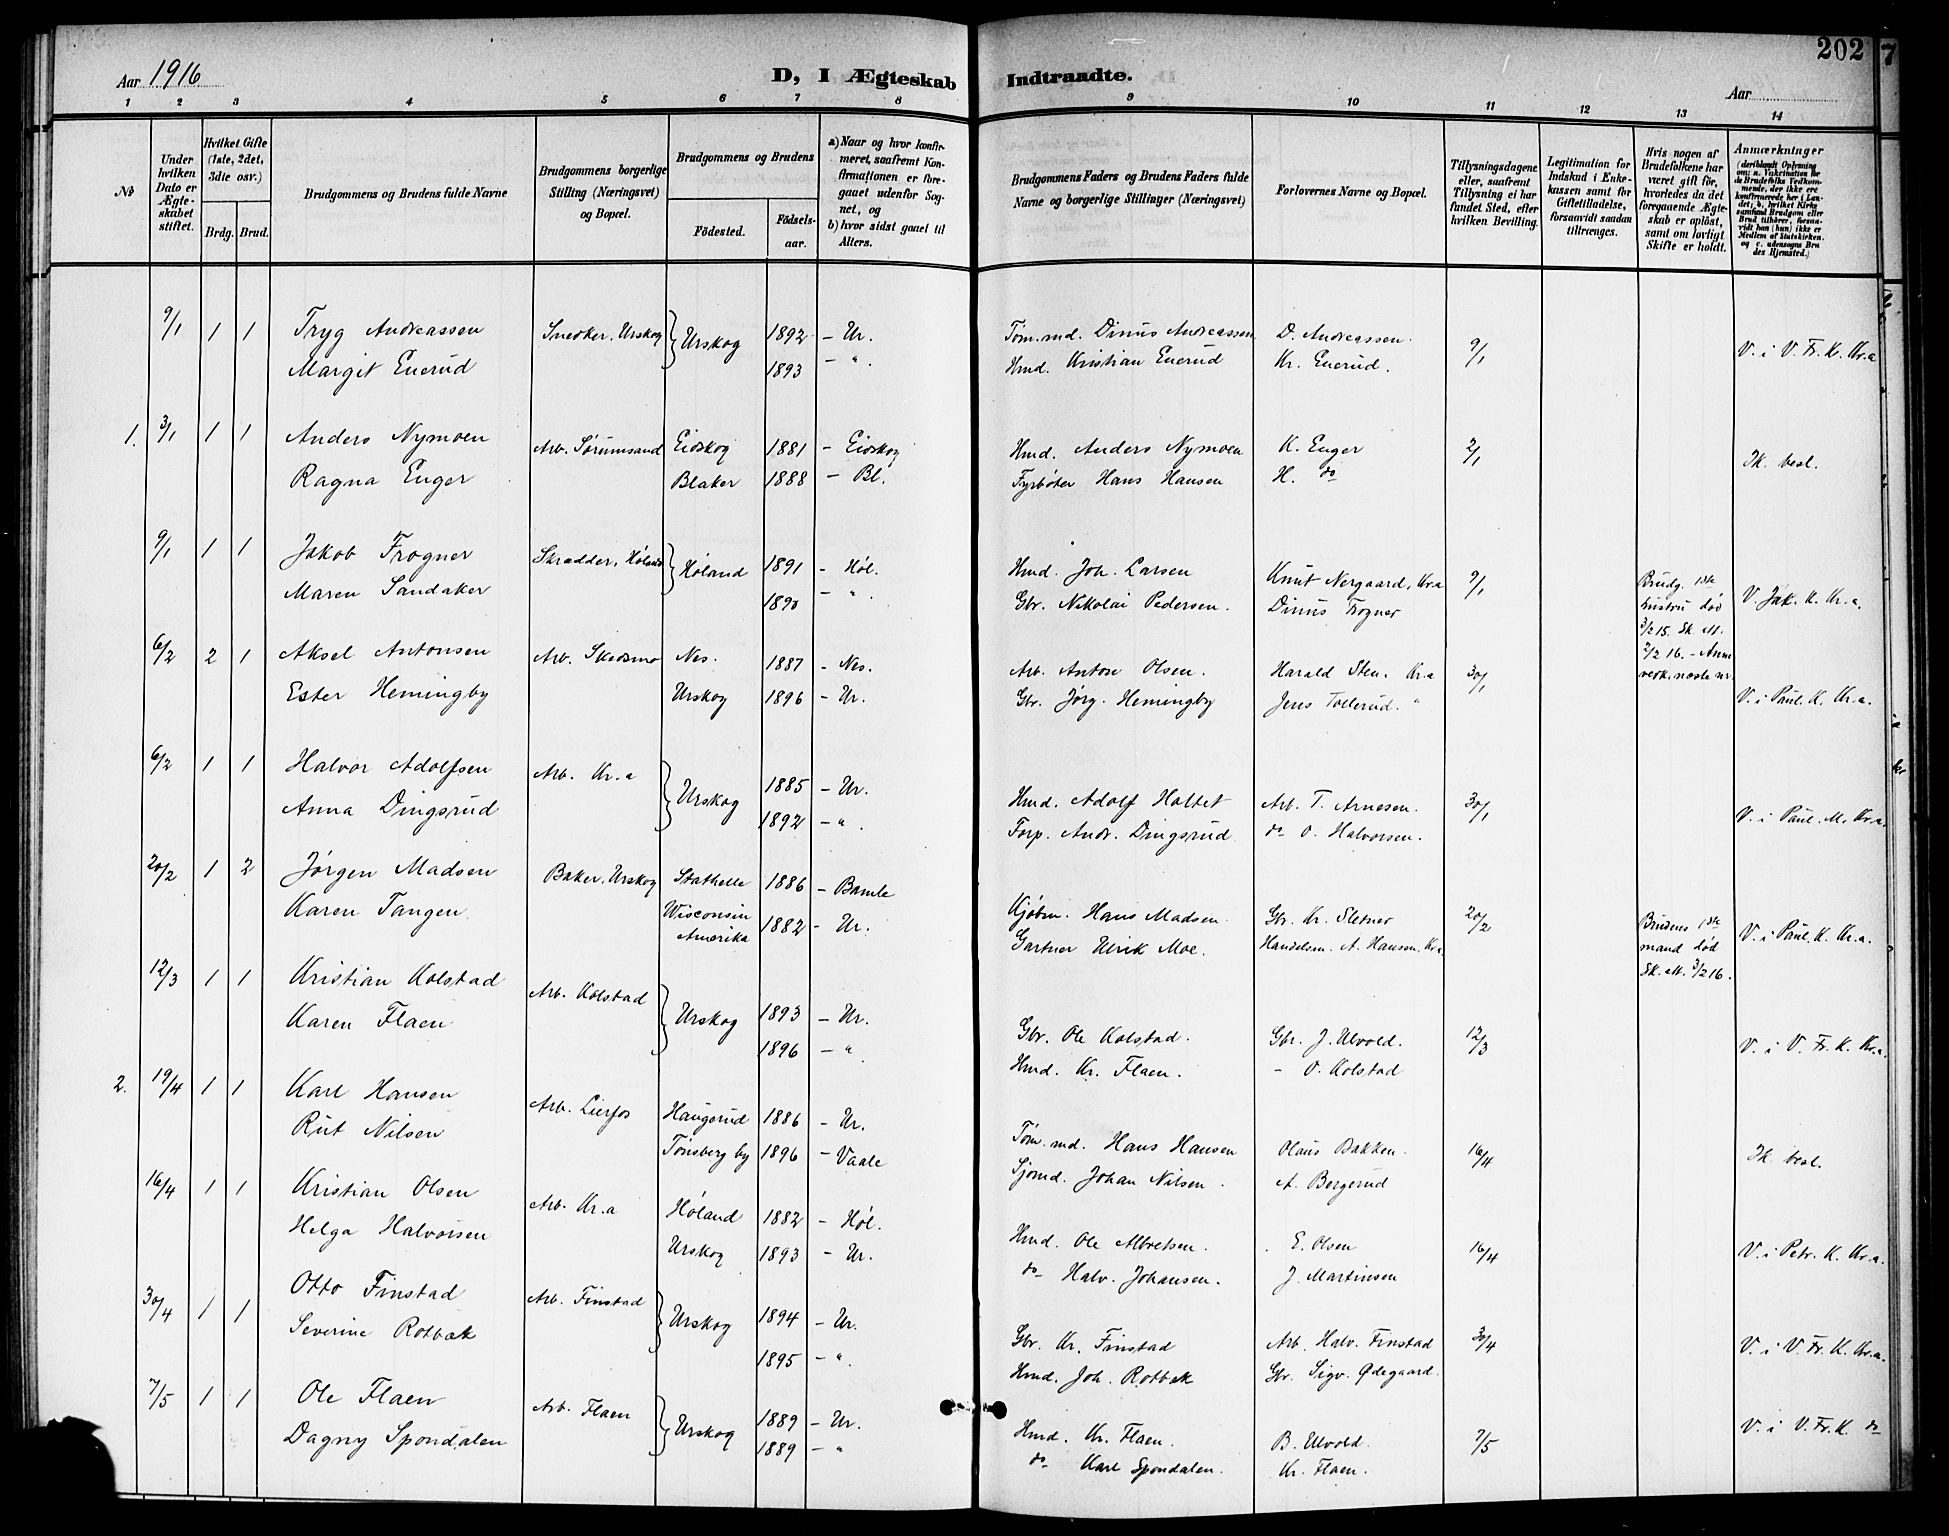 202
Aar 1916
D, I Ægteskab Indtraadte.
Aar
1 2 3 4 5 6 7 8 9 10 11 12 13 14
No
Under hvilken Dato er Ægteskabet stiftet.
Hvilket Gifte (1ste, 2det, 3die osv.)
Brdg. Brud.
Brudgommens og Brudens fulde Navne
Brudgommens borgerlige Stilling (Næringsvei) og Bopæl.
Brudgommens og Brudens
Födested. Födselsaar.
a) Naar og hvor konfirmeret, saafremt Konfirmationen er foregaaet udenfor Sognet, og
b) hvor sidst gaaet til Alters.
Brudgommens Faders og Brudens Faders fulde Navne og borgerlige Stillinger (Næringsvei)
Forlovernes Navne og Bopæl.
Tillysningsdagene eller, saafremt Tillysning ei har fundet Sted, efter hvilken Bevilling.
Legitimation for Indskud i Enkekassen samt for Giftetilladelse, forsaavidt saadan tiltrænges.
Hvis nogen af Brudefolkene har været gift før, hvorledes da det foregaaende Ægteskab er oplöst, samt om lovligt Skifte er holdt.
Anmærkninger (deriblandt Oplysning om: a. Vakcination for de Brudefolks Vedkommende, der ikke ere konfirmerede her i Landet; b. hvilket Kirkesamfund Brudgom eller Brud tilhörer, forsaavidt han (hun) ikke er Medlem af Statskirken, og c. udensogns Brudes Hjemsted.)
9/1 1 1 Tryg Andreassen Snedker, Urskog Urskog 1892 – Ur. Tøm.md. Dinus Andreassen D. Andreassen. 9/1 V. i V. Fr. K. Kr.a
Margit Enerud 1893 – " . Hmd. Kristian Enerud Kr. Enerud.
1. 3/1 1 1 Anders Nymoen Arb. Sørumsand Eidskog 1881 – Eidskog Hmd. Anders Nymoen K. Enger 2/1 Ik. besl.
Ragna Enger Blaker 1888 – Bl. Fyrbøter Hans Hansen H. do
9/1 1 1 Jakob Frogner Skrædder, Høland Høland 1891 – Høl. Hmd. Joh. Larsen Knut Nergaard, Kr.a 9/1 V. Jak. K. Kr.a.
Maren Sandaker 1890 – " . Gbr. Nikolai Pedersen. Dinus Frogner
Brudg. 1ste
hustru død
3/2 15. Sk. att.
2/2 16. – Anm
verk. næste nr.
6/2 2 1 Aksel Antonsen Arb. Skedsmo Nes. 1887 – Nes. Arb. Anton Olsen. Harald Sten. Kr.a 30/1 V. i Paul. K. Kr.a.
Ester Hemingby Urskog 1896 – Ur. Gbr. Jørg. Hemingby Jens Tollerud. "
6/2 1 1 Halvor Adolfsen Arb. Kr.a Urskog 1885 – Ur. Hmd. Adolf Holtet Arb. T. Arnesen. 30/1 V. i Paul. M. Kr.a.
Anna Dingsrud 1892 – " . Forp. Andr. Dingsrud do O. Halvorsen.
20/2 1 2 Jørgen Madsen Baker, Urskog Stathelle 1886 – Bamle Kjøbm. Hans Madsen. Gbr. Kr. Sletner 20/2 V. i Paul. K. Kr.a.
Karen Tangen. Wisconsin Amerika 1882 – Ur. Gartner Ulrik Moe. Handelsm. A. Hansen, Kr.a.
Brudens 1ste
mand død
Sk. att. 3/2 16.
12/3 1 1 Kristian Kolstad Arb. Kolstad Urskog 1893 – Ur. Gbr. Ole Kolstad. Gbr. J. Ulvold. 12/3 V. i V. Fr. K. Kr.a.
Karen Flaen 1896 – " . Hmd. Kr. Flaen. – O. Kolstad
2. 19/4 1 1 Karl Hansen Arb. Lierfos Haugerud 1886 – Ur. Tøm.md. Hans Hansen Olaus Bakken. 16/4 Ik. besl.
Rut Nilsen Tønsberg by 1896 – Vaale Sjømd. Johan Nilsen. A. Bergerud
16/4 1 1 Kristian Olsen Arb. Kr.a Høland 1882 – Høl. Hmd. Ole Albretsen. E. Olsen 16/4 V. i Petr. K. Kr.a.
Helga Halvorsen Urskog 1893 – Ur. do Halv. Johansen. J. Martinsen
30/4 1 1 Otto Finstad Arb. Finstad Urskog 1894 – Ur. Gbr. Kr. Finstad Arb. Halv. Finstad 30/4 V. i V. Fr. K. Kr.a.
Severine Rotbæk 1895 – " . Hmd. Joh. Rotbæk Gbr. Sigv. Ødegaard.
7/5 1 1 Ole Flaen Arb. Flaen Urskog 1889 – Ur. Hmd. Kr. Flaen. B. Ulvold. 7/5 V. i V. Fr. K. do
Dagny Spondalen 1889 – " do Karl Spondalen. Kr. Flaen.